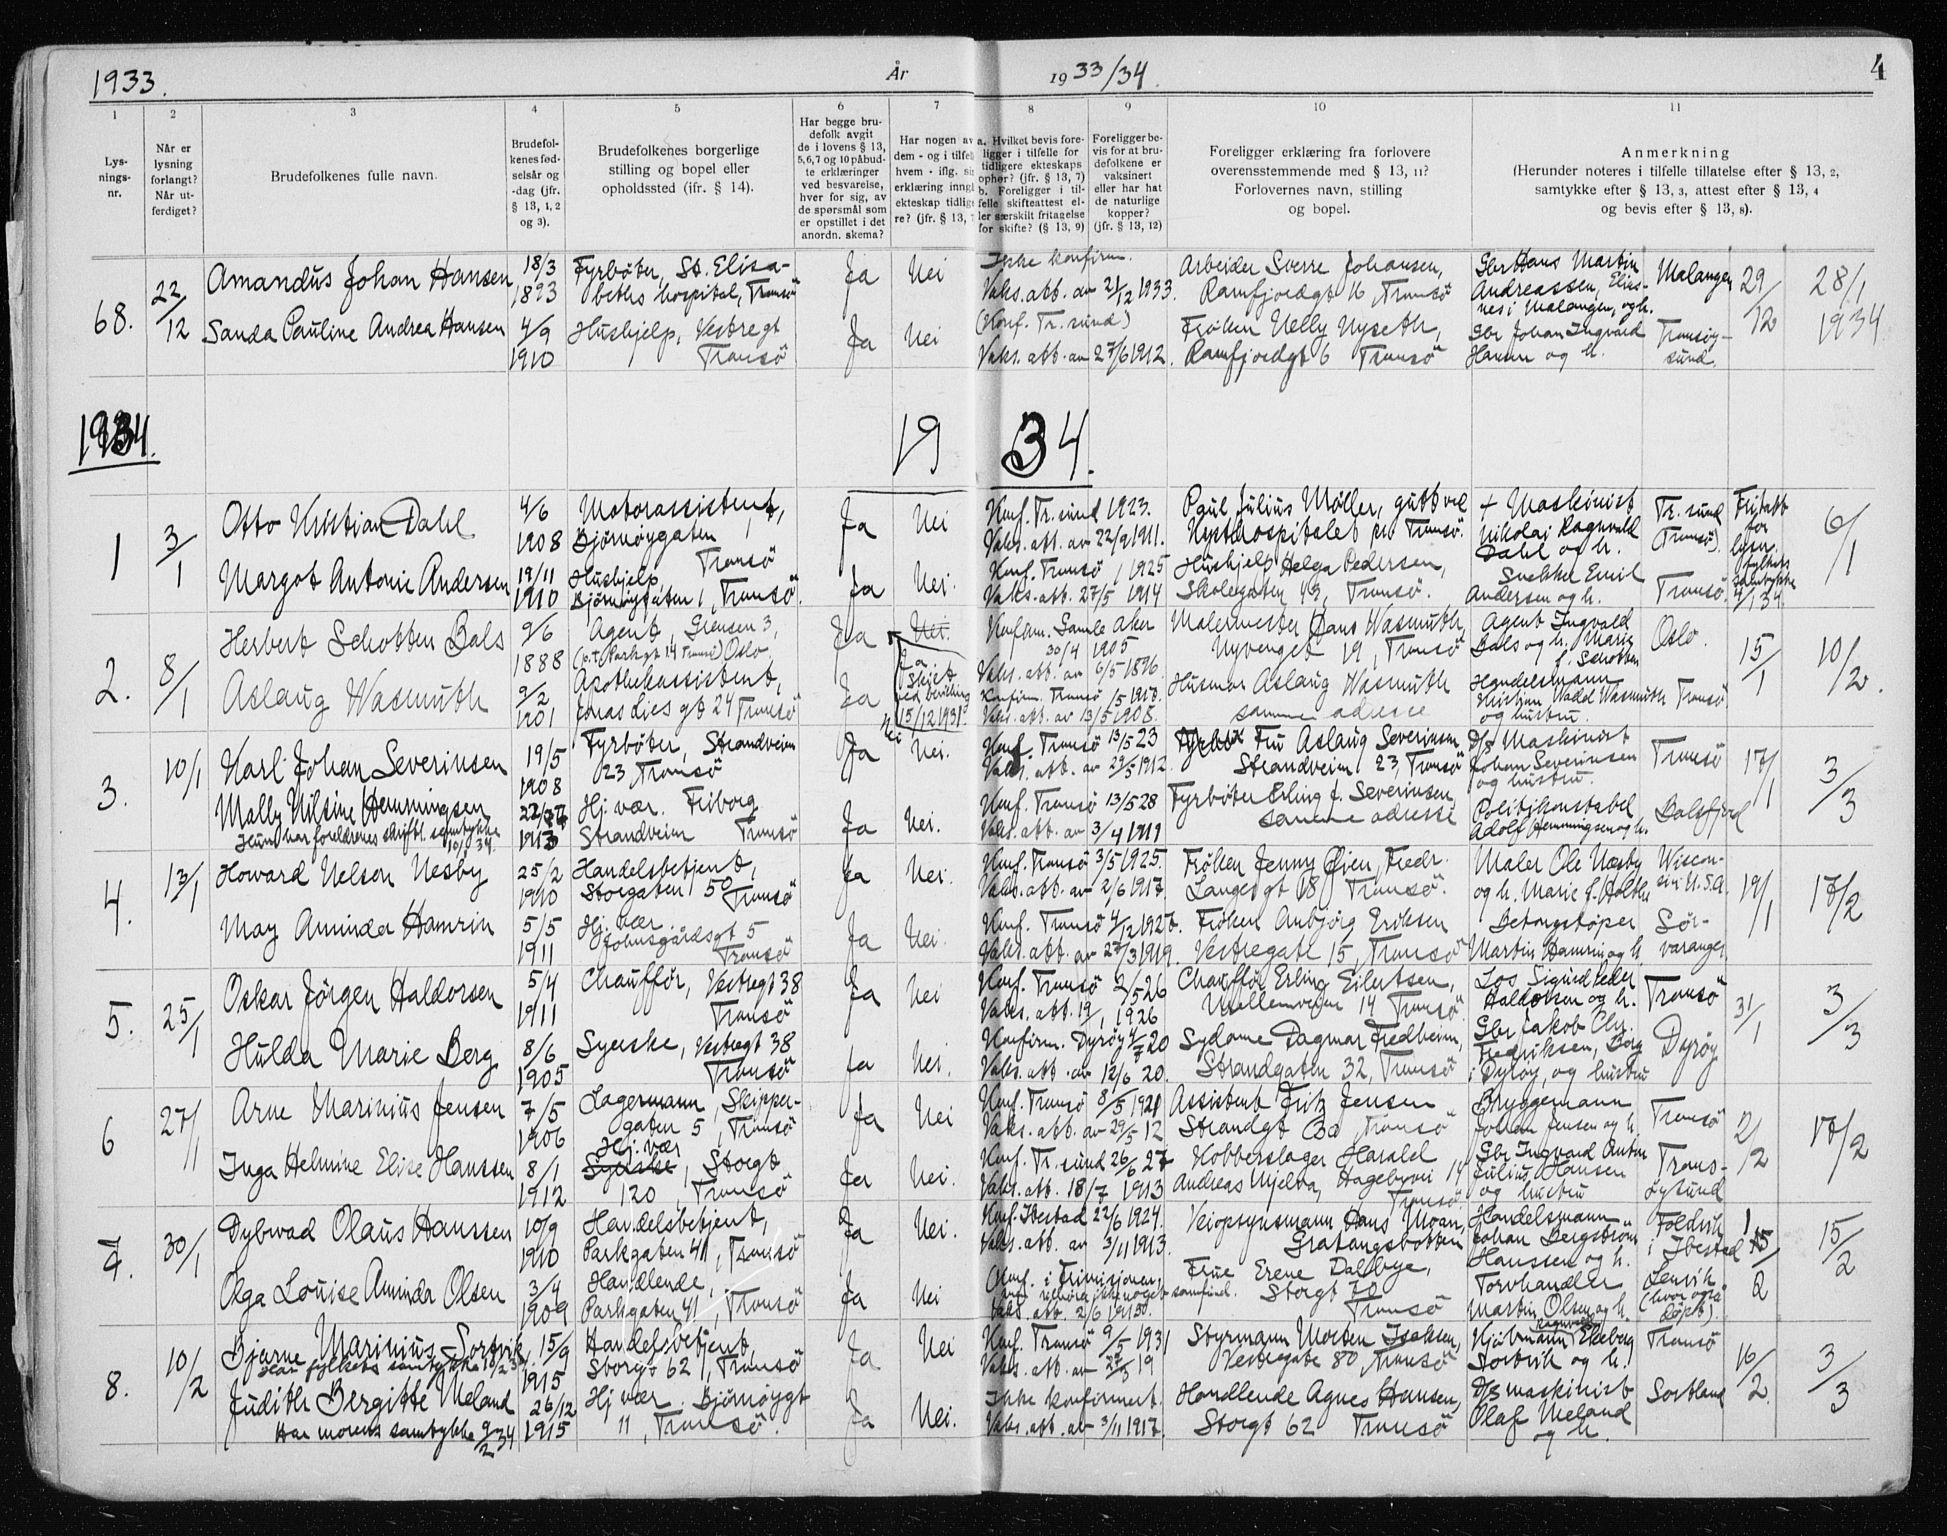 1933. År 1933/34. 4
1 2 3 4 5 6 7 8 9 10 11
Lysningsnr.
Når er lysning forlangt? Når utferdiget?
Brudefolkenes fulle navn.
Brudefolkenes fødselsår og -dag (jfr. § 13, 1, 2 og 3).
Brudefolkenes borgerlige stilling og bopel eller opholdssted (ifr. § 14).
Har begge brudefolk avgit de i lovens § 13, 5,6,7 og 10 påbudte erklæringer ved besvarelse, hver for sig, av de spørsmål som er opstillet i det anordn. skema?
Har nogen av dem - og i tilfelle hvem - iflg. sin erklæring inngått ekteskap tidligere? (jfr. § 13, 7
a. Hvilket bevis foreligger i tilfelle for tidligere ekteskaps ophør? (jfr. § 13, 7) b. Foreligger i tilfelle skifteattest eller særskilt fritagelse for skifte? (§ 13, 9)
Foreligger bevis for at brudefolkene er vaksinert eller har hat de naturlige kopper? (jfr. § 13, 12)
Foreligger erklæring fra forlovere overensstemmende med § 13, 11? Forlovernes navn, stilling og bopel.
Anmerkning (Herunder noteres i tilfelle tillatelse efter § 13, 2, samtykke efter § 13, 3, attest efter § 13, 4 og bevis efter § 13, 8).
68. 22/12 Amandus Johan Hansen 18/3 1893 Fyrbøter, St. Elisabeths hospital, Tromsö Ja Nei Ikke konfirm. Vaks. att. av 21/12 1933. Arbeider Sverre Johansen, Ramfjordgt 16, Tromsö Gbr Hans Martin Andreassen, Elines i Malangen, og h. Malangen 29/12 28/1 1934
Sanda Pauline Andrea Hansen 4/9 1910 Hushjelp, Vestregt Tromsö Ja Nei (Konf. Tr.sund) Vaks. att. av 27/6 1912. Frøken Nelly Nyseth, Ramfjordgt 6 Tromsö Gbr Johan Ingvald Hansen og h. Tromsøysund.
1934. 19 34.
1 3/1 Otto Kristian Dahl 4/6 1908 Motorassistent, Bjørnøygaten 1, Tromsö Ja Nei Konf. Tr.sund 1923. Vaks. att. av 22/9 1911. Paul Julius Möller, Kysthospitalet pr. Tromsö. + Maskinist Nikolai Ragnvald Dahl og h. Tr.sund (Tromsö). Fritatt for lysn. fylkets samtykke 4/1 34. 6/1
Margot Antonie Andersen 19/11 1910 Hushjelp, Bjørnøygaten 1, Tromsö. Ja Nei. Konf. Tromsö 1925 Vaks. att. 27/5 1914 Hushjelp Helga Pedersen, Skolegaten 43, Tromsö. Snekker Emil Andersen og h. Tromsö.
2. 8/1 Herbert Schotten Bals 9/6 1888 Agent, Grensen 3, Oslo (p.t. Parkgt 14 Tromsö) Ja Nei. Ja Skilt ved bevilling 15/12 1931. Konfirm. Gamle Aker 30/4 1905 Vaks. att. av 6/5 1896. Malermester Hans Wasmuth, Nyvenget 19, Tromsö Agent Ingvald Bals og h. Marie f. Schotten Oslo. 15/1 10/2.
Aslaug Wasmuth 9/2 1901 Apothekassistent, Jonas Lies gt 24 Tromsö Ja Nei Konfirm. Tromsö Vaks. att. av 13/5 1908. Husmor Aslaug Wasmuth samme adresse Handelsmann Kristian Wadel Wasmuth og hustru. Tromsö
3. 10/1 Karl Johan Severinsen 19/5 1908 Fyrbøter, Strandveien 23, Tromsö Ja Nei. Konf. Tromsö 13/5 23 Vaks. att. av 29/5 1912. Fru Aslaug Severinsen Strandveien 23, Tromsö D/S Maskinist Johan Severinsen og hustru. Tromsö 17/1 3/3
Mally Nilsine Hemmingsen 1913 Hj. vær. Friborg Strandveien Tromsö Ja Nei. Konf. Tromsö 13/5 28 Vaks. att. av 3/4 1919 Fyrbøter Erling f. Severinsen, samme adresse Politikonstabel Adolf Hemmingsen og h. Balsfjord
Hun har foreldrenes skriftl. samtykke 10/1 34.
4. 13/1 Howard Nelson Nesby 25/2 1910 Handelsbetjent, Storgaten 50 Tromsö Ja Nei. Konf. Tromsö 3/5 1925. Vaks. att. av 2/6 1917. Frøken Jenny Øien, Fredr. Langes gt 18, Tromsö. Maler Ole Næsby og h. Marie f. Holthe Wisconsin U.S.A. 19/1 17/2
May Aminda Hamrin 5/5 1911 Hj. vær Tromsö Ja Nei. Konf. Tromsö 4/12 1927. Vaks. att. av 27/3 1919. Frøken Anbjörg Eriksen Vestregate 15, Tromsö Betongstøper Martin Hamrin og h. Sørvaranger
5. 25/1 Oskar Jörgen Haldorsen 5/4 1911 Chauffør, Vestregt 38 Tromsö Ja Nei Konf. Tromsö 2/5 26 Vaks. att. 19/1 1926 Chauffør Erling Eilertsen, Mellemveien 14 Tromsö. Los Sigurd Peder Haldorsen og h. Tromsö 31/1 3/3
Hulda Marie Berg 8/6 1905 Syerske, Vestregt 38 Tromsö Ja Nei. Konfirm. Dyrøy 4/7 20 Vaks. att. av 12/6 20. Sydame Dagmar Fredheim, Strandgaten 32, Tromsö Gbr Jakob Chr. Fredriksen, Berg i Dyrøy, og hustru Dyrøy
6 27/1 Arne Marinius Jensen 7/5 1906 Lagermann Skippergaten 5, Tromsö Ja Nei Konf. Tromsö 8/5 1921 Vaks. att. av 29/5 12 Assistent Fritz Jensen Strandgt Tromsö Bryggemann Johan Jensen og h. Tromsö 2/2 17/2
Inga Helmine Elise Hanssen 8/1 1912 Hj. vær Syerske, Storgt 120, Tromsö Ja Nei. Konf. Tr.sund 26/6 27 Vaks. att. 18/7 1913 Kobberslager Harald Andreas Mjelva, Hagebyvei 14 Tromsö. Gbr Ingvard Anton Julius Hansen og hustru Tromsøysund
7. 30/1 Dybvad Olaus Hanssen 10/9 1910 Handelsbetjent, Parkgaten 41, Tromsö Ja Nei. Konf. Ibestad 22/6 1924. Vaks. att. av 3/11 1913. Veiopsynsmann Hans Moan, Gratangsbotten Handelsmann Johan Bergström Hanssen og h. Foldvik i Ibestad 15/2
Olga Louise Aminda Olsen 3/4 1909 Handlende, Parkgaten 41, Tromsö Ja Nei Konf. i Frimisjonen, Vaks. att. 2/6 1913. Frue Erene Dalbye, Storgt 70 Tromsö Torvhandler Martin Olsen og h. Lenvik (hvor også døpt).
8. 10/2 Bjarne Marinius Sortvik 15/9 1915 Handelsbetjent, Storgt 62, Tromsö Ja Nei Konf. Tromsö 9/5 1931 Vaks. att. av 19 Styrmann Morten Isaksen, Vestregate 80, Tromsö Ragnvald Ekeberg Sortvik og h. Tromsö 16/2 3/3
Har fylkets samtykke
Judith Bergitte Meland 26/12 1915 Hj vær Bjørnøygt 11, Tromsö. Ja Nei. Ikke konfirmert. Vaks. att. av 3/11 1917. Handlende Agnes Hansen, Storgt 62 Tromsö D/S maskinist Olaf Meland og h. Sortland
Har morens samtykke 9/2 34